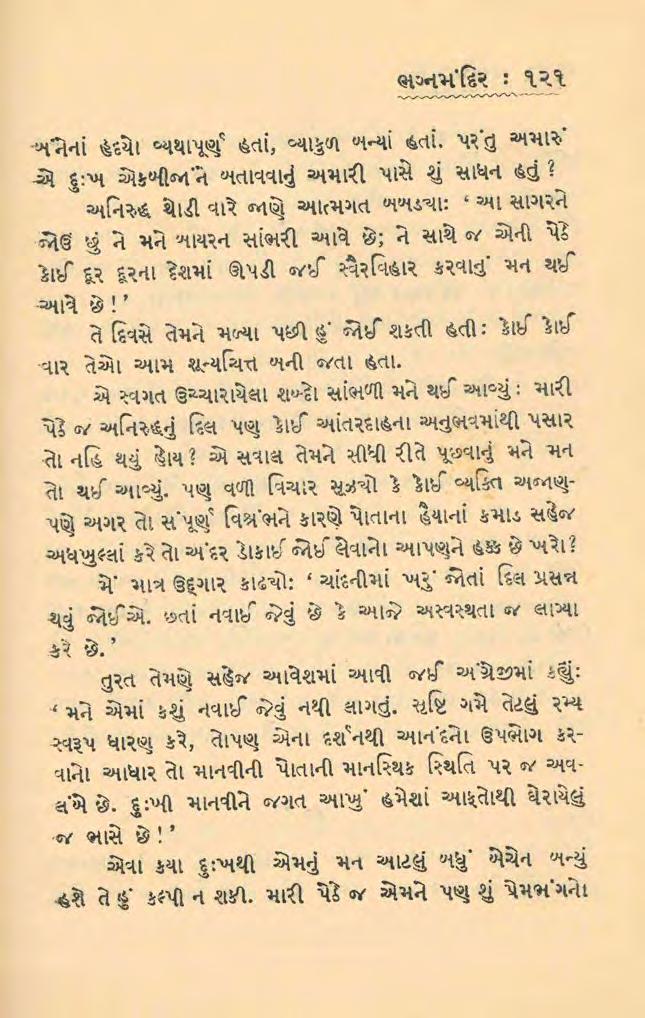 ભગ્નમંદિર : ૧૨૧
બંનેનાં હૃદયો વ્યથાપૂર્ણ હતાં, વ્યાકુળ બન્યાં હતાં. પરંતુ અમારું
એ દુઃખ એકબીજાંને બતાવવાનું અમારી પાસે શું સાધન હતું ?
અનિરુદ્ધ થોડી વારે જાણે આત્મગત બબડ્યાઃ ‘ આ સાગરને
જોઉં છું ને મને બાયરન સાંભરી આવે છે; ને સાથે જ એની પેઠે
કોઈ દૂર દૂરના દેશમાં ઊપડી જઈ સ્વૈરવિહાર કરવાનું મન થઈ
આવે છે ! ’
તે દિવસે તેમને મળ્યા પછી હું જોઈ શકતી હતીઃ કોઈ કોઈ
વાર તેઓ આમ શૂન્યચિત્ત બની જતા હતા.
એ સ્વગત ઉચ્ચારાયેલા શબ્દો સાંભળી મને થઈ આવ્યું : મારી
પેઠે જ અનિરુદ્ધનું દિલ પણ કોઈ આંતરદાહના અનુભવમાંથી પસાર
તો નહિ થયું હોય ? એ સવાલ તેમને સીધી રીતે પૂછવાનું મને મન
તો થઈ આવ્યું. પણ વળી વિચાર સૂઝ્યો કે કોઈ વ્યક્તિ અજાણ-
પણે અગર તો સંપૂર્ણ વિશ્રંભને કારણે પોતાના હૈયાનાં કમાડ સહેજ
અધખુલ્લાં કરે તો અંદર ડોકાઈ જોઈ લેવાનો આપણને હક્ક છે ખરો?
મેં માત્ર ઉદ્દગાર કાઢ્યોઃ ‘ ચાંદનીમાં ખરું જોતાં દિલ પ્રસન્ન
થવું જોઈએ. છતાં નવાઈ જેવું છે કે આજે અસ્વસ્થતા જ લાગ્યા
કરે છે.’
તુરત તેમણે સહેજ આવેશમાં આવી જઈ અંગ્રેજીમાં કહ્યુંઃ
‘ મને એમાં કશું નવાઈ જેવું નથી લાગતું. સૃષ્ટિ ગમે તેટલું રમ્ય
સ્વરૂપ ધારણ કરે, તોપણ એના દર્શનથી આનંદનો ઉપભોગ કર-
વાનો આધાર તો માનવીની પોતાની માનસિક સ્થિતિ પર જ અવ-
લંબે છે. દુઃખી માનવીને જગત આખું હમેશાં આફતોથી ઘેરાયેલું
જ ભાસે છે ! ’
એવા કયા દુઃખથી એમનું મન આટલું બધું બેચેન બન્યું
હશે તે હું કલ્પી ન શકી. મારી પેઠે જ એમને પણ શું પ્રેમભંગનો